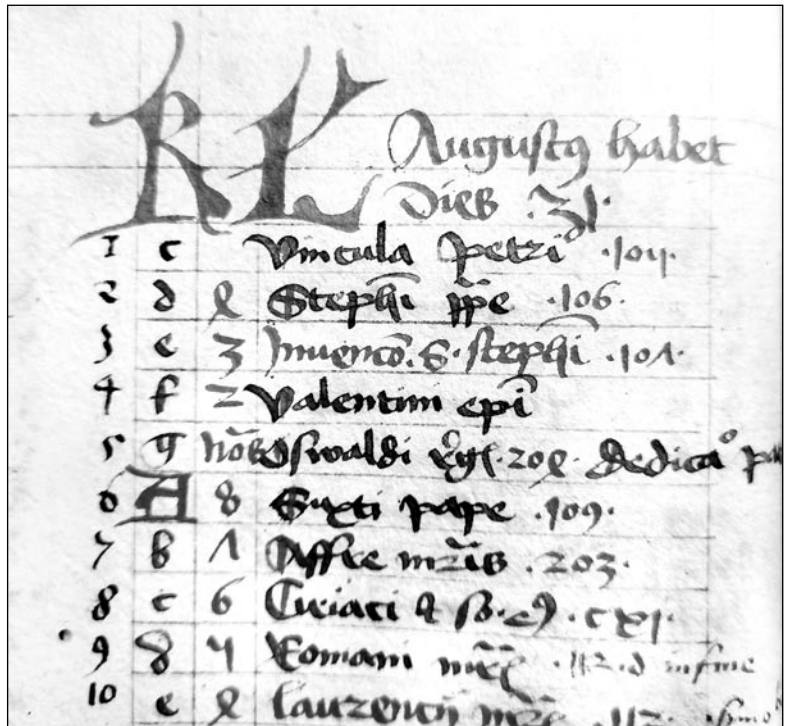 KL Augustus habet
Dies .31.
1 c Vincula Petri .104.
2 d 4 Stephi ppe .106.
3 e 3 Invencō. S. stephi .107.
4 f 2 Valentini epi
5 g nōs Oswaldi rg .204. dedicao
6 A 8 Sixti pape .109.
7 b 7 Affre mris .203.
8 c 6 Ciriaci & so. ei9 . cxi.
9 d 5 Romani mr . 112. d in fine
10 e 4 laurencij mr . 112.